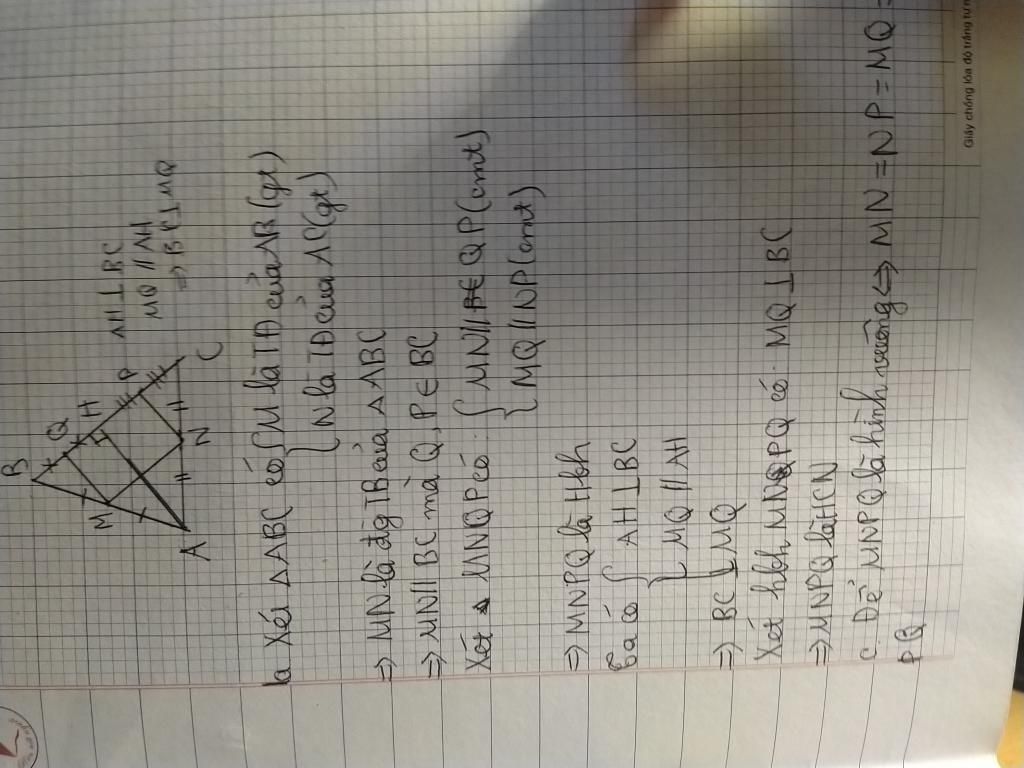 B
Q
H
M
P
A
N
C
AH ⊥ BC
MQ // AH
⇒ BC ⊥ MQ
Xét △ABC có { M là TĐ của AB (gt)
{ N là TĐ của AC (gt)
⇒ MN là đg TB của △ABC
⇒ MN // BC mà Q, P ∈ BC
Xét MNQP có: { MN // QP (cmt)
{ MQ // NP (cmt)
⇒ MNPQ là Hbh
Ta có { AH ⊥ BC
{ MQ // AH
⇒ BC ⊥ MQ
Xét hbh MNPQ có: MQ ⊥ BC
⇒ MNPQ là HCN
c. Để MNPQ là hình vuông ⇔ MN = NP = MQ =
PQ
Giấy chống lóa độ trắng tự n